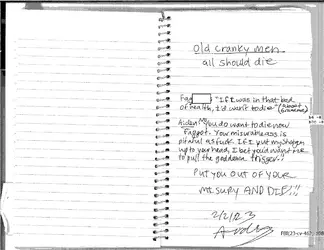 old cranky men
all should die
Fag "If I was in that bad
of health, I'd want to die" (about
Grandma)
Aiden: "You do want to die now
Faggot. Your miserable ass is
pitiful as fuck. If I put my shotgun
up to your head, I bet you would like me
to pull the goddamn trigger."
PUT YOU OUT OF YOUR
misery AND DIE!!!
2/2/23